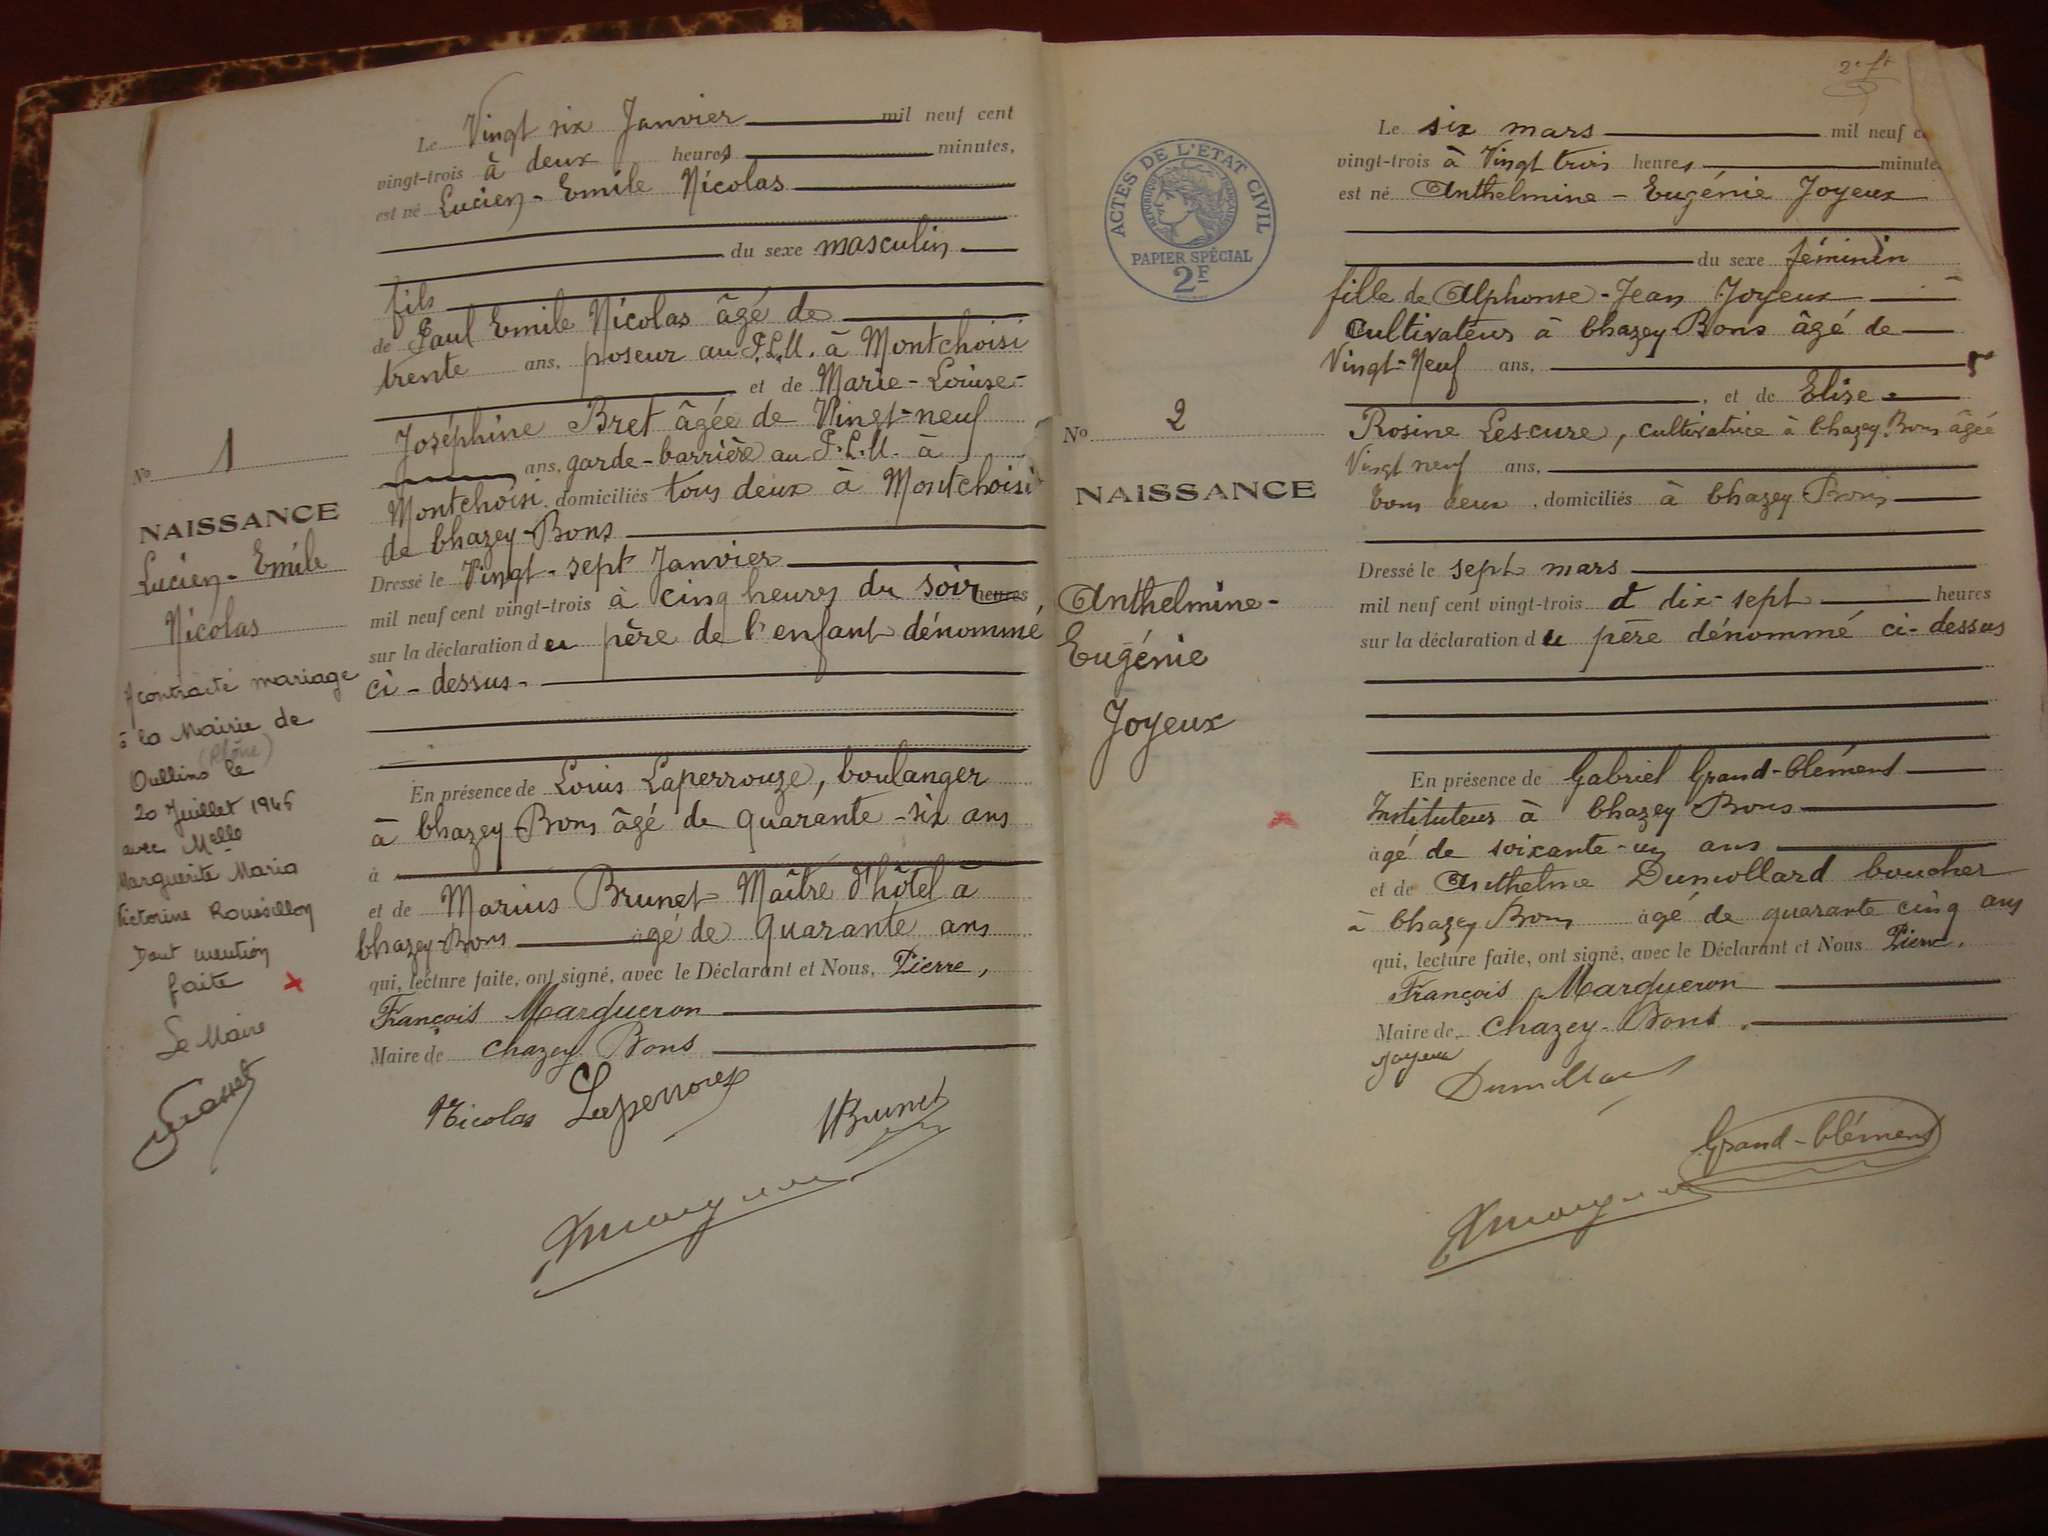 Le Vingt six Janvier mil neuf cent
vingt-trois à deux heures minutes,
est né Lucien - Emile Nicolas
du sexe masculin
fils
de Paul Emile Nicolas âgé de
trente ans, poseur au P.L.M. à Montchoisi
et de Marie - Louise -
Joséphine Bret âgée de Vingt-neuf
ans, garde-barrière au P.L.M. à
Montchoisi domiciliés tous deux à Montchoisi
de Chazey-Bons
Dressé le Vingt-sept Janvier
mil neuf cent vingt-trois à cinq heures du soir heures
sur la déclaration du père de l'enfant dénommé
ci-dessus-
En présence de Louis Laperrouze, boulanger
à Chazey-Bons âgé de quarante-six ans
à
et de Marius Brunet Maître d'hôtel à
Chazey-Bons agé de quarante ans
qui, lecture faite, ont signé, avec le Déclarant et Nous, Pierre,
François Margueron
Maire de Chazey Bons
Nicolas Laperrouze
Brunet
No 1
NAISSANCE
Lucien-Emile
Nicolas
A contracté mariage
à la Mairie de
(Rhône)
Oullins le
20 Juillet 1946
avec Melle
Marguerite Maria
Victorine Roussillon
Dont mention
faite
Le Maire
2e ft
ACTES DE L'ETAT CIVIL
REPUBLIQUE FRANÇAISE
PAPIER SPÉCIAL
2F
No 2
NAISSANCE
Anthelmine-
Eugénie
Joyeux
Le six mars mil neuf c
vingt-trois à Vingt trois heures minute
est né Anthelmine - Eugénie Joyeux
du sexe féminin
fille de Alphonse-Jean Joyeux
Cultivateur à Chazey-Bons âgé de
Vingt-Neuf ans,
, et de Elise
Rosine Lescure, cultivatrice à Chazey Bons âgée
Vingt neuf ans,
tous deux , domiciliés à Chazey Bons
Dressé le sept mars
mil neuf cent vingt-trois à dix-sept heures
sur la déclaration du père dénommé ci-dessus
En présence de Gabriel Grand-Clément
Instituteur à Chazey Bons
agé de soixante-un ans
et de Anthelme Dumollard boucher
à Chazey Bons agé de quarante cinq ans
qui, lecture faite, ont signé, avec le Déclarant et Nous Pierre,
François Margueron
Maire de Chazey-Bons.
Joyeux
Dumollard
Grand-Clément